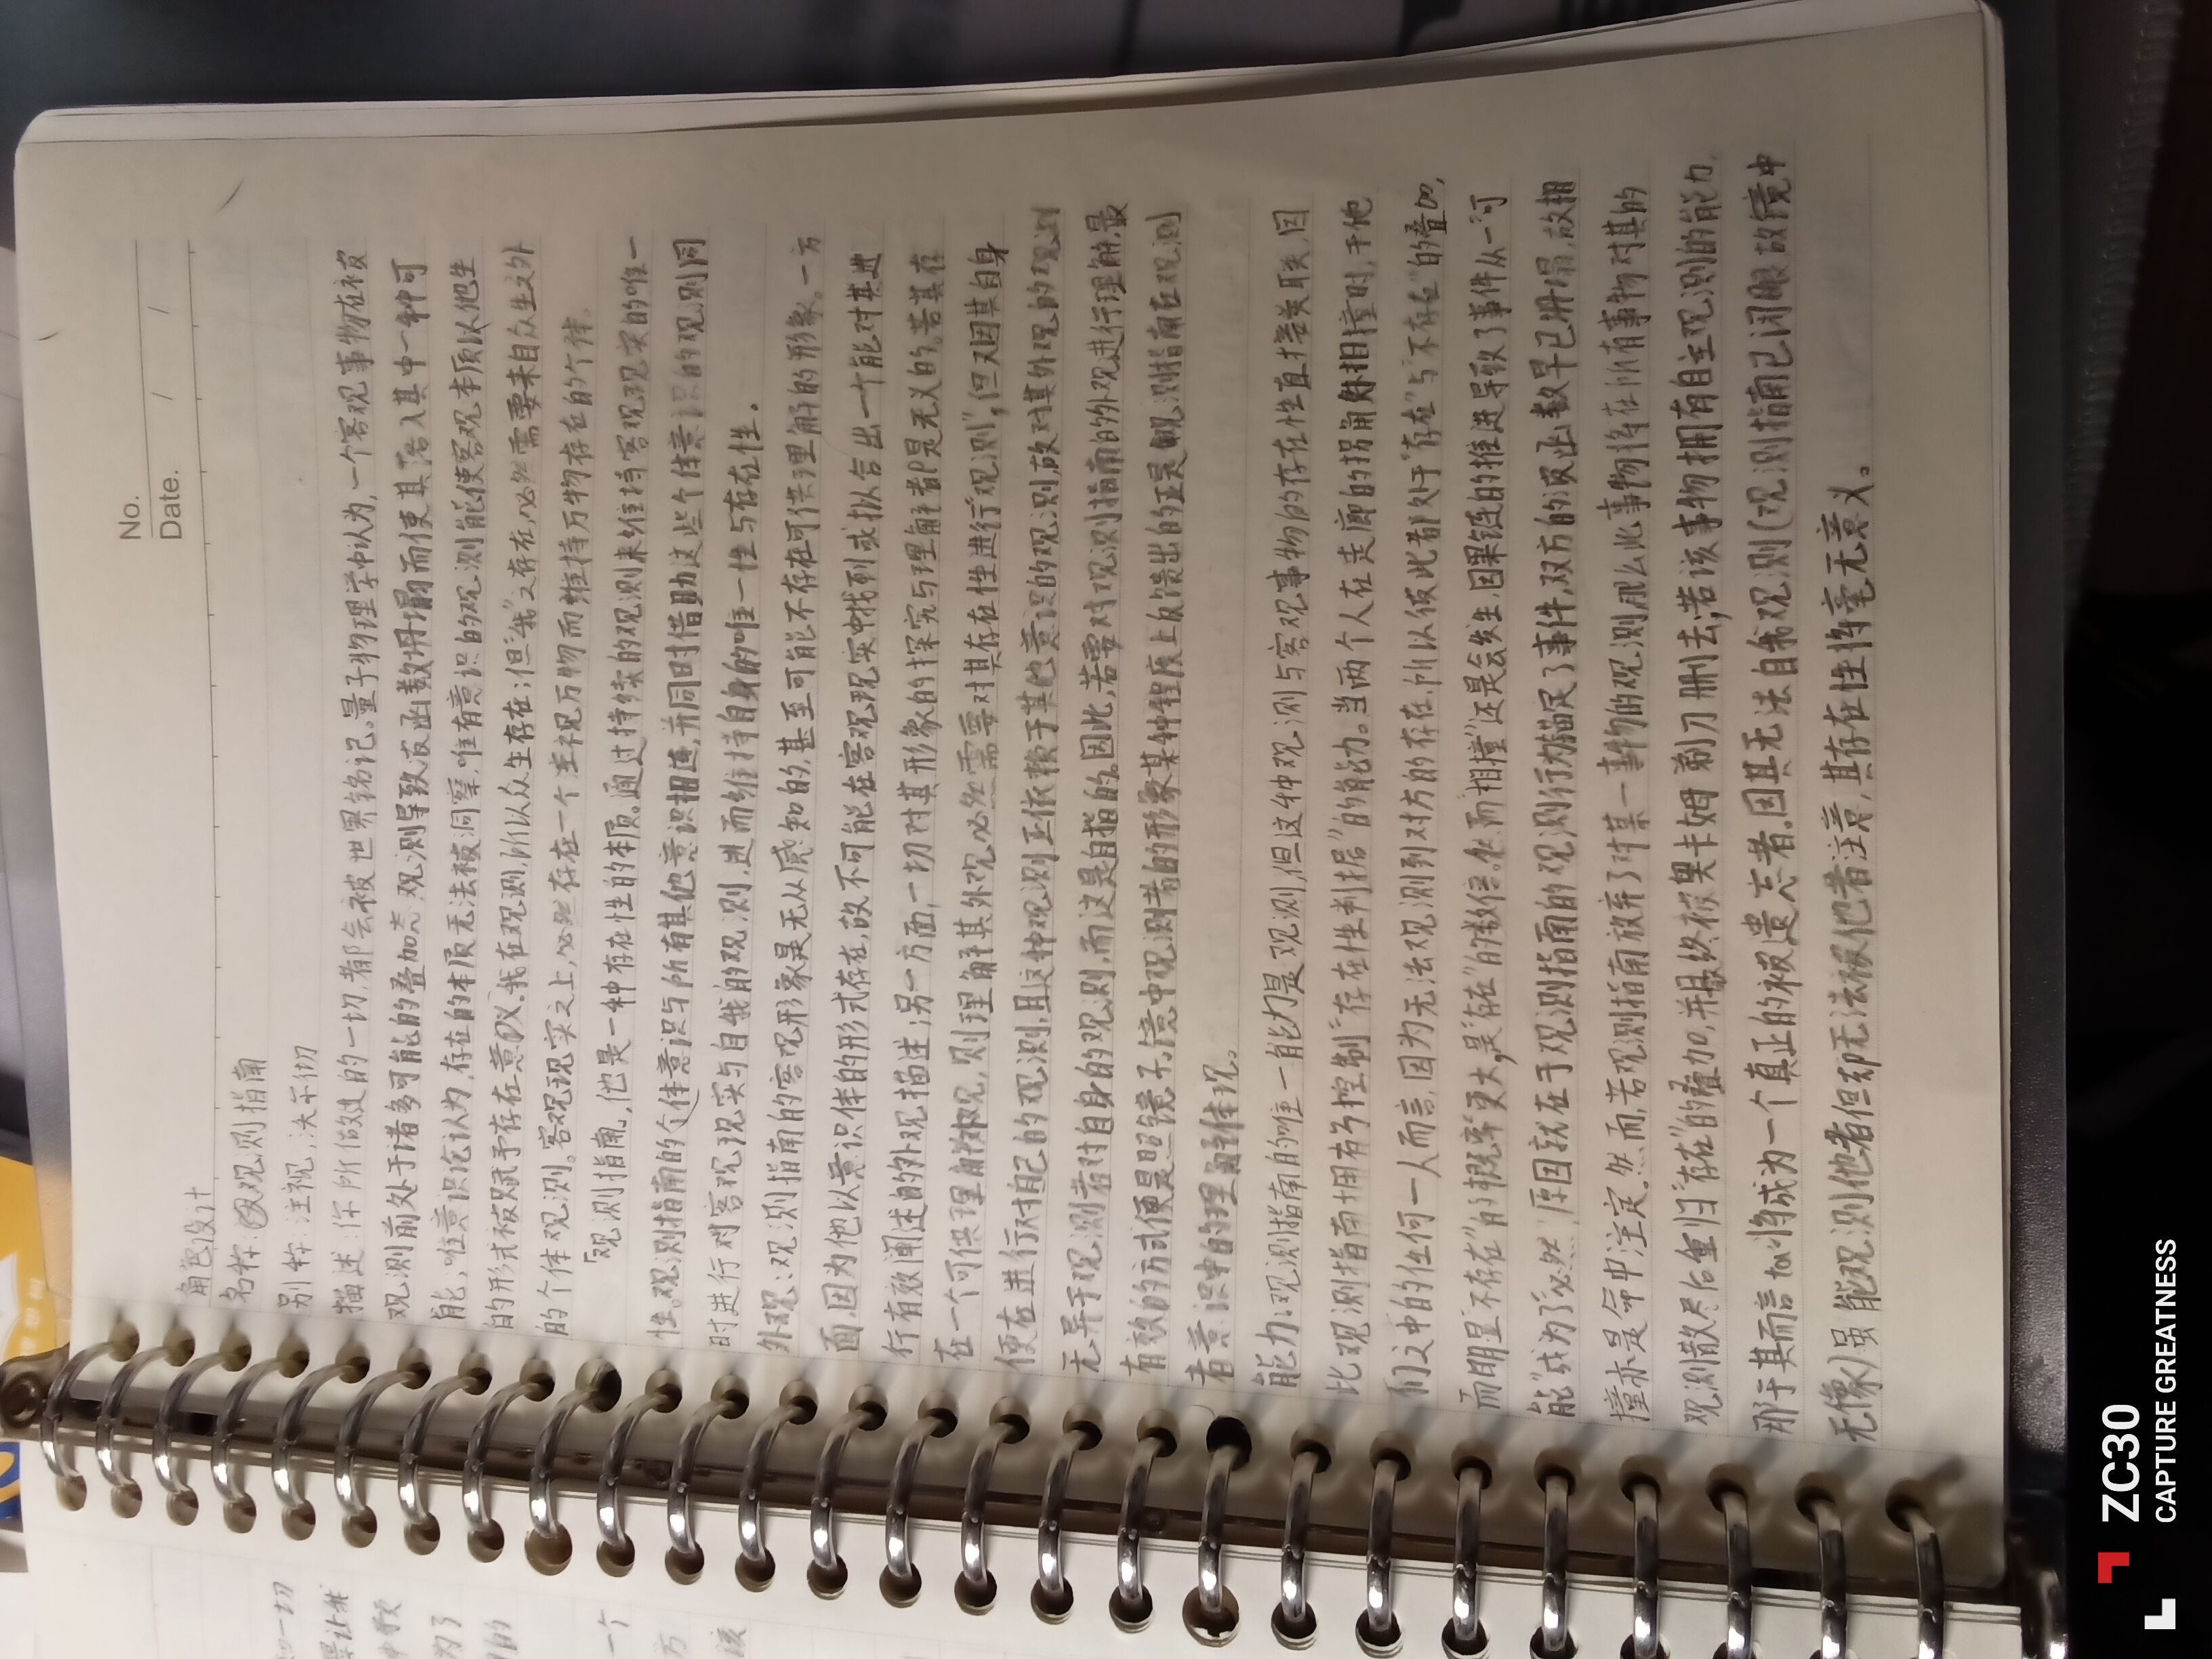 No.
Date. / /
角色设计
名称:观测指南
别称:注视、决不彻
描述:你所做过的一切,都会被世界铭记。量子物理学中认为,一个客观事物在被
观测前处于诸多可能的叠加态,观测导致波函数坍塌而使其落入其中一种可
能,唯意识论认为,存在的本质无法被洞察,唯有意识的观测能使客观本质以他生
的形式被赋予存在意义。我在观测,所以众生存在;但"我"又存在,必然需要来自众生之外
的个体观测。客观现实之上,必然存在一个注视万物而维持万物存在的个体。
「观测指南」,他是一种存在性的本质。通过持续的观测来维持客观现实的唯一
性。观测指南的个体意识与所有其他意识相连,并同时借助这些个体意识的观测同
时进行对客观现实与自我的观测,进而维持自身的唯一性与存在性。
外观:观测指南的客观形象是无从感知的,甚至可能不存在可供理解的形象。一方
面因为他以意识伴的形式存在,故不可能在客观现实中找到或拟合出一个能对其进
行有效阐述的外观描述;另一方面,一切对其形象的探究与理解都是无义的。若其存
在一个可供理解的外观,则理解其外观必然需要对其存在性进行"观测",但又因其自身
便在进行对自己的观测,且这种观测正依赖于其他意识的观测,故对其外观的观测
无异于观测者对自身的观测,而这是自指的。因此,若要对观测指南的外观进行理解,最
有效的方式便是照镜子,镜中观测者的形象某种程度上反馈出的正是观测指南在观测
者意识中的理解体现。
能力:观测指南的唯一能力是观测,但这种观测与客观事物的存在性直接关联,因
此观测指南拥有了控制"存在性判据"的能力。当两个人在走廊的拐角处相撞时,于他
们之中的任何一人而言,因为无法观测到对方的存在,所以彼此都处于"存在"与"不存在"的叠加,
而明显"不存在"的概率更大,是"存在"的数倍。然而"相撞"还是会发生,因果链的推进导致了事件从"可
能"成为了"必然",原因就在于观测指南的观测行为锚定了事件,双方的波函数早已坍塌,故相
撞亦是命中注定。然而,若观测指南放弃了对某一事物的观测,那么此事物将在所有事物对其的
观测散尽后重归"存在"的叠加,并最终被奥卡姆剃刀删去,若该事物拥有自主观测的能力,
那于其而言ta将成为一个真正的被遗忘者。因其无法自我观测(观测指南已闭眼,故镜中
无像)虽能观测他者但却无法被他者注意,其存在性将毫无意义。
ZC30
CAPTURE GREATNESS